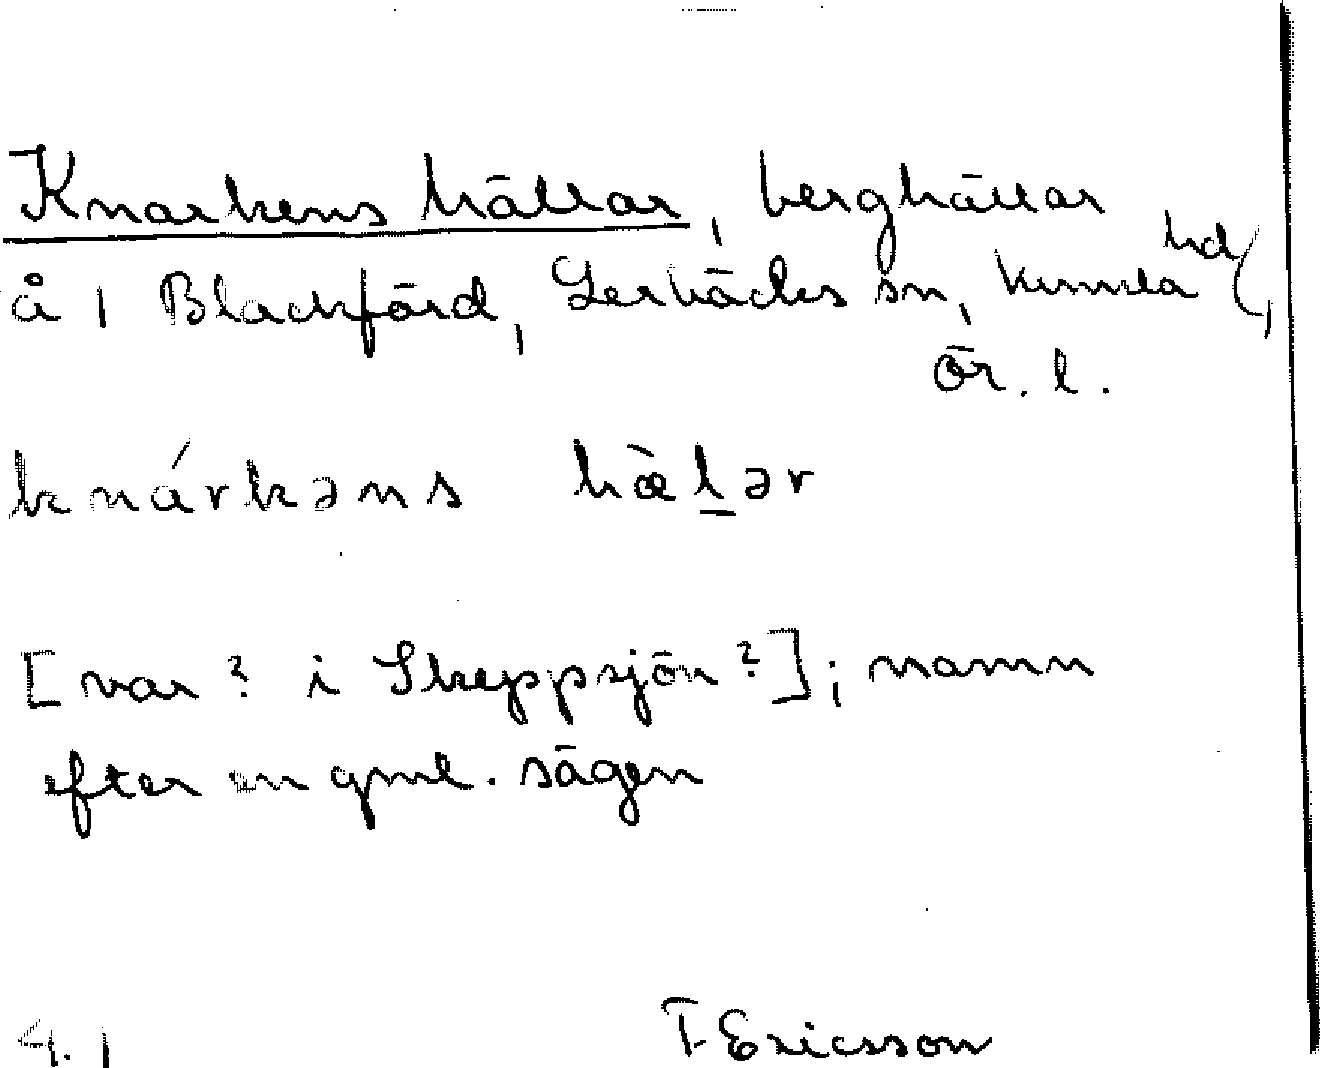 Knarkens hällar, berghällar
å 1 Blackfärd, Lerbäcks sn, Kumla hd,
Ör. l.
knárkəns hæ̀lər
[var? i Skeppsjön?]; namn
efter en gml. sägen
4.1 T. Ericsson